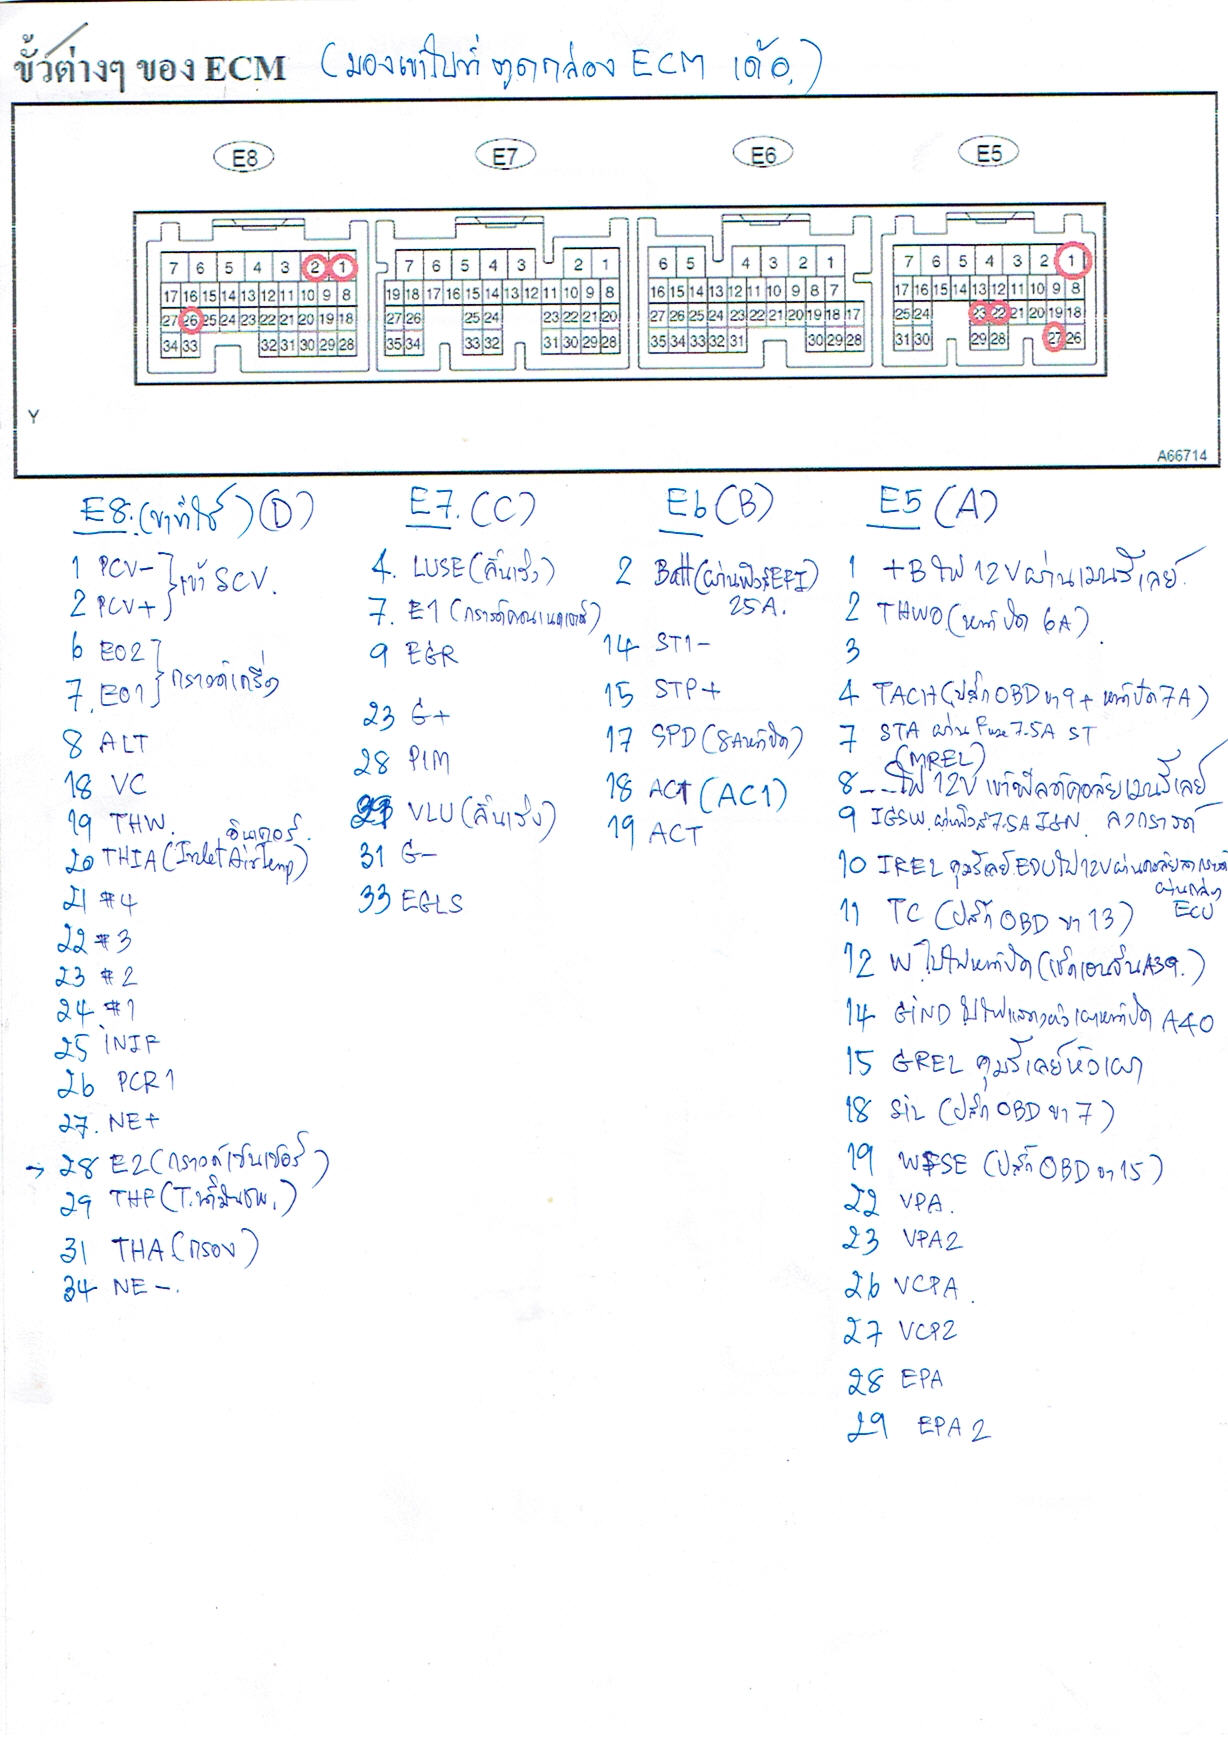 ขั้วต่างๆ ของ ECM (มองเข้าไปที่ ตูดกล่อง ECM เด้อ)
E8 E7 E6 E5
7 6 5 4 3 2 1 7 6 5 4 3 2 1 6 5 4 3 2 1 7 6 5 4 3 2 1
17 16 15 14 13 12 11 10 9 8 19 18 17 16 15 14 13 12 11 10 9 8 16 15 14 13 12 11 10 9 8 7 17 16 15 14 13 12 11 10 9 8
27 26 25 24 23 22 21 20 19 18 27 26 25 24 23 22 21 20 27 26 25 24 23 22 21 20 19 18 17 25 24 23 22 21 20 19 18
34 33 32 31 30 29 28 35 34 33 32 31 30 29 28 35 34 33 32 31 30 29 28 31 30 29 28 27 26
Y
A66714
E8. (ขาที่ใช้) (D)
1 PCV-
2 PCV+
เข้า SCV.
6 E02
7. E01
กราวด์เครื่อง
8 ALT
18 VC
19 THW.
อินเตอร์.
20 THIA (Inlet Air Temp)
21 #4
22 #3
23 #2
24 #1
25 INJF
26 PCR1
27. NE+
→ 28 E2 (กราวด์เซ็นเซอร์)
29 THF (T.น้ำมันชพ.)
31 THA (กรอง)
34 NE-.
E7. (C)
4. LUSE (ลิ้นเร่ง)
7. E1 (กราวด์คอนเนคเตอร์)
9 EGR
23 G+
28 PIM
29 VLU (ลิ้นเร่ง)
31 G-
33 EGLS
E6 (B)
2 Batt (ผ่านฟิวส์ EFI)
25A.
14 ST1-
15 STP+
17 SPD (8A หน้าปัด)
18 ACT (AC1)
19 ACT
E5 (A)
1 +B ไฟ 12V ผ่านเมนรีเลย์.
2 THWO (หน้าปัด 6A)
3
4 TACH (ปลั๊ก OBD ขา 9 + หน้าปัด 7A)
7 STA ผ่าน Fuse 7.5A ST
(MREL)
8 -- ไฟ 12V เข้าฟีลด์คอลย์เมนรีเลย์
9 IGSW. ผ่านฟิวส์ 7.5A IGN ลงกราวด์
10 IREL คุมรีเลย์ EDU ไฟ 12V ผ่านคอลย์ลงกราวด์
ผ่านกล่อง
ECU
11 TC (ปลั๊ก OBD ขา 13)
12 W ไปไฟหน้าปัด (เช็คเอนจิ้น A39.)
14 GIND ไปไฟแสดงหัวเผาหน้าปัด A40
15 GREL คุมรีเลย์หัวเผา
18 SIL (ปลั๊ก OBD ขา 7)
19 WFSE (ปลั๊ก OBD ขา 15)
22 VPA.
23 VPA2
26 VCPA.
27 VCP2
28 EPA
29 EPA2